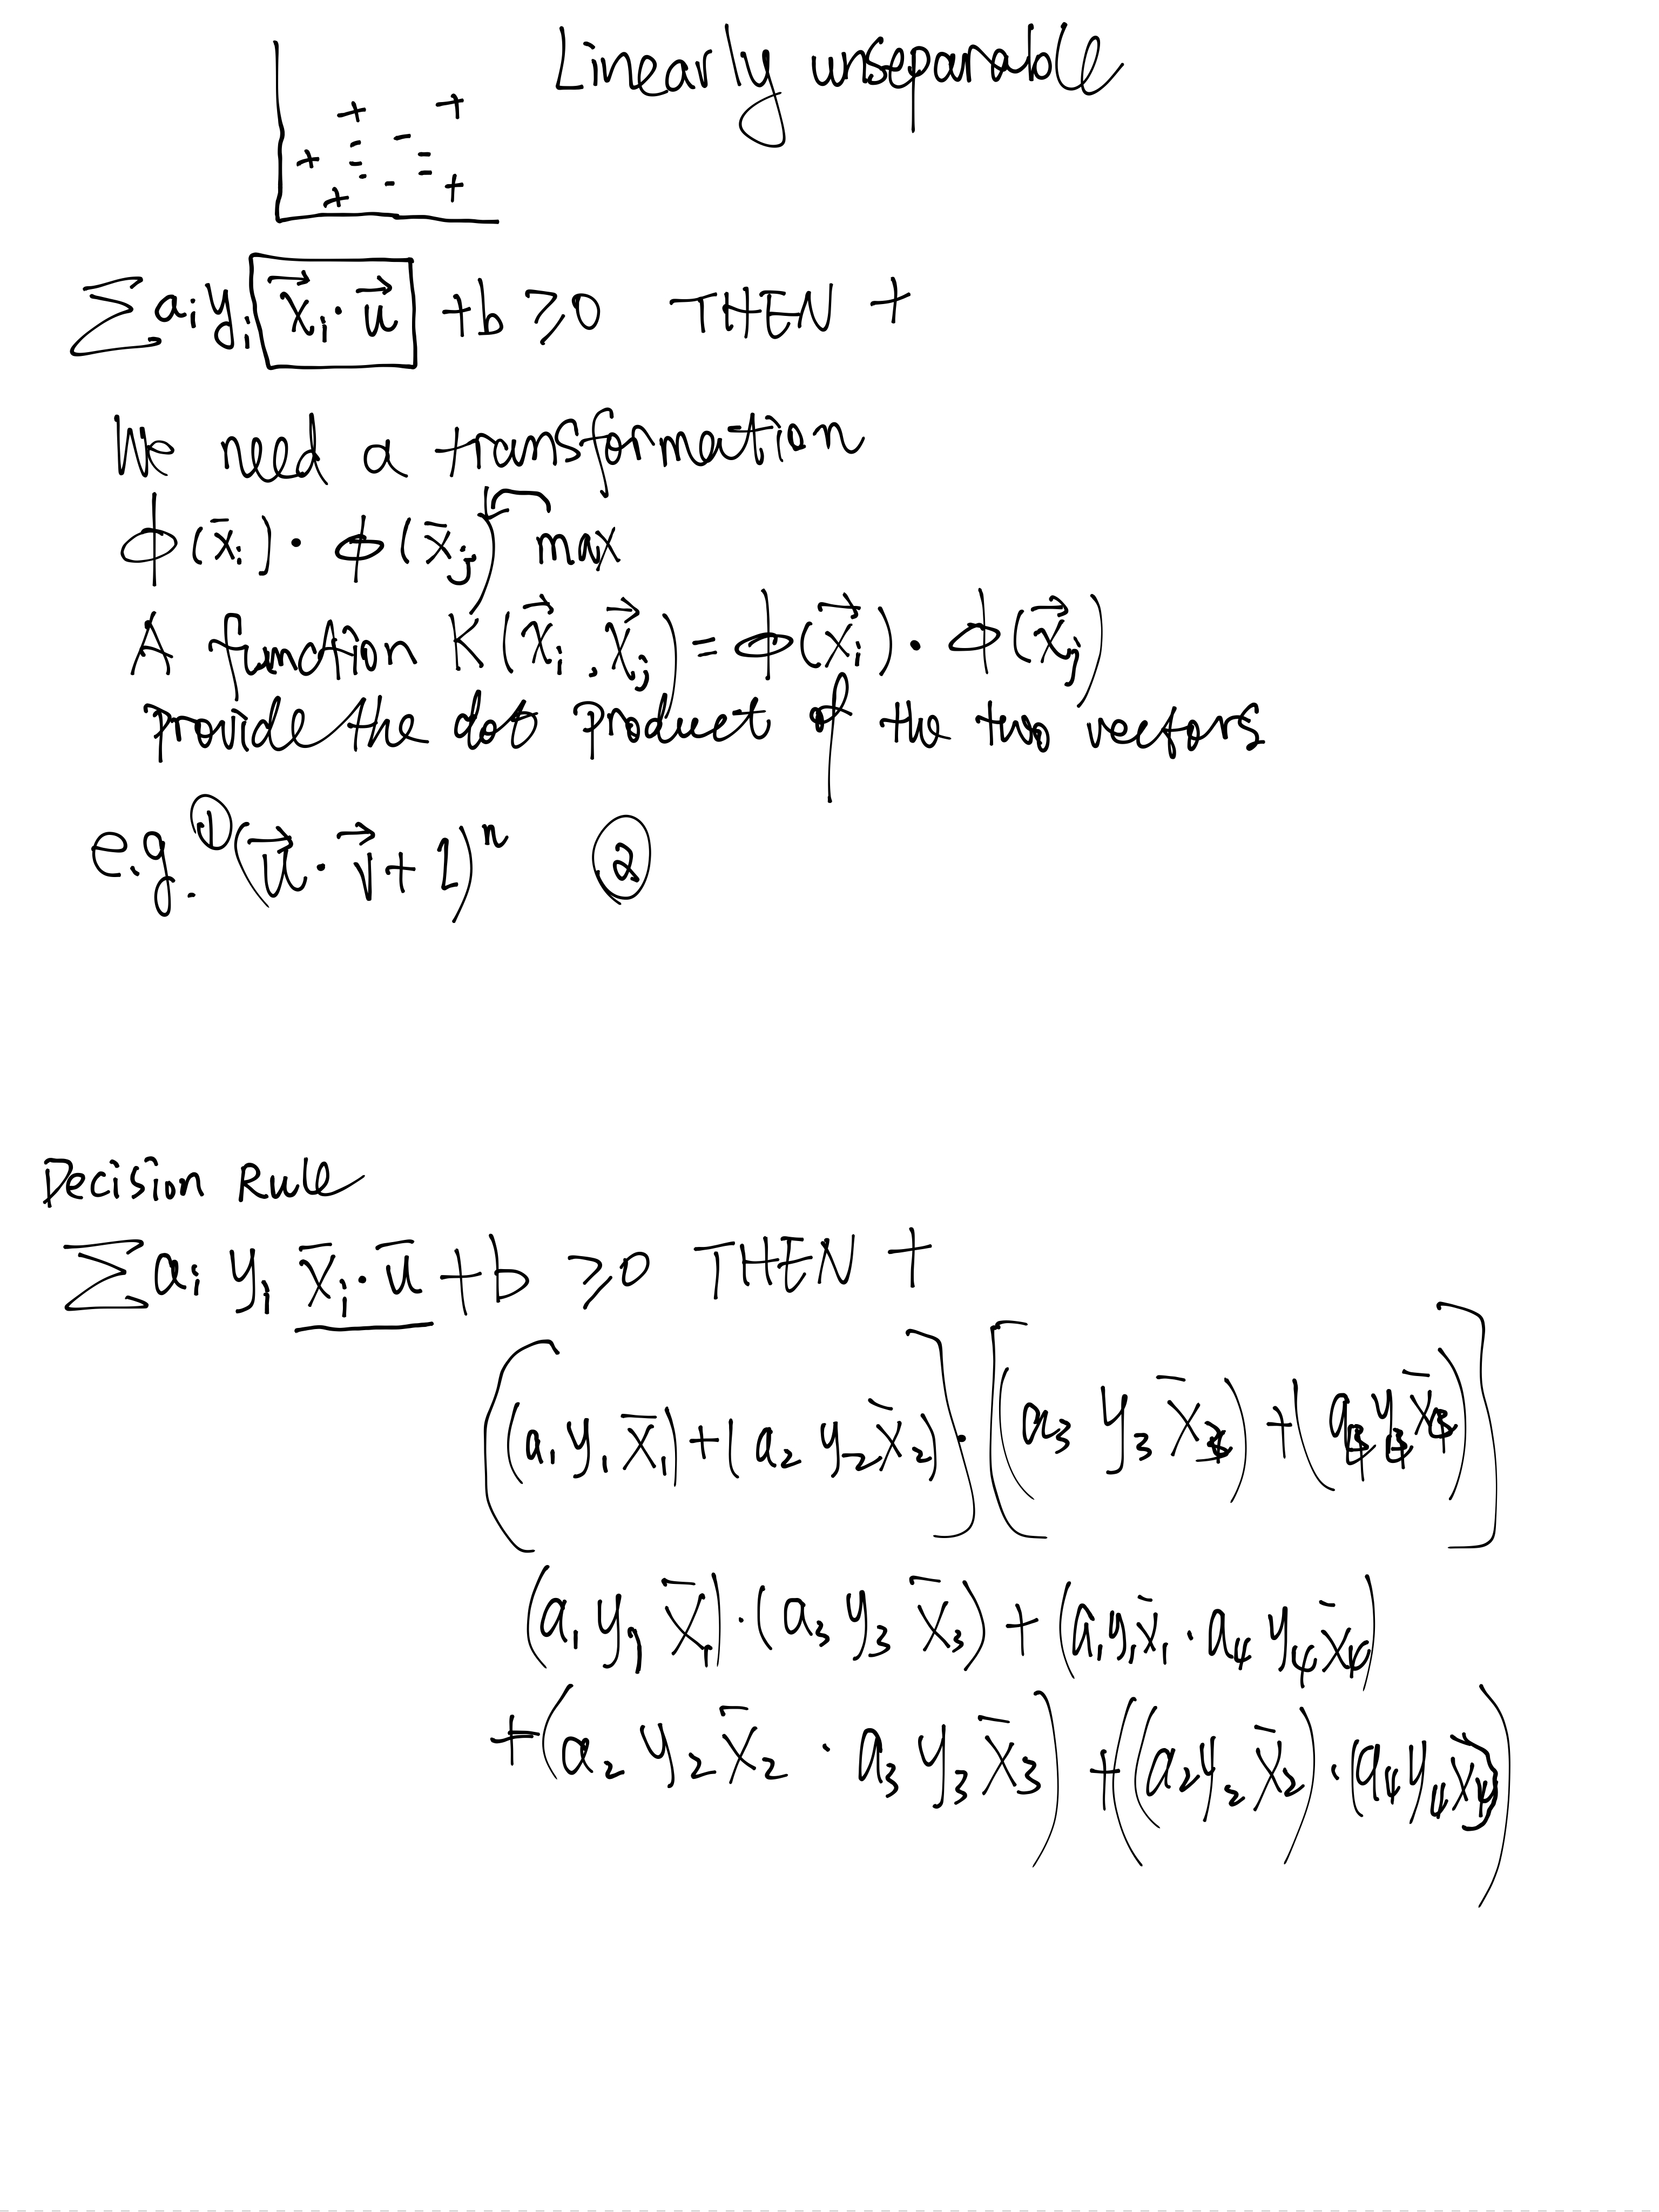 Linearly unseparable
∑aᵢyᵢ x⃗ᵢ·u⃗ +b ≥0 THEN +
We need a transformation
ϕ(x̄ᵢ)·ϕ(x̄ⱼ) max
A function K(x⃗ᵢ,x⃗ⱼ)=ϕ(x⃗ᵢ)·ϕ(x⃗ⱼ)
provide the dot product of the two vectors
e.g. ①(u⃗·v⃗+1)ⁿ ②
Decision Rule
∑aᵢ yᵢ x̄ᵢ·ū +b ≥0 THEN +
[(a₁y₁x̄₁)+(a₂y₂x̄₂)]·[(a₃y₃x̄₃)+(a₄y₄x̄₄)]
(a₁y₁x̄₁)·(a₃y₃x̄₃)+(a₁y₁x̄₁·a₄y₄x̄₄)
+(a₂y₂x̄₂·a₃y₃x̄₃)+((a₂y₂x̄₂)·(a₄y₄x̄₄))